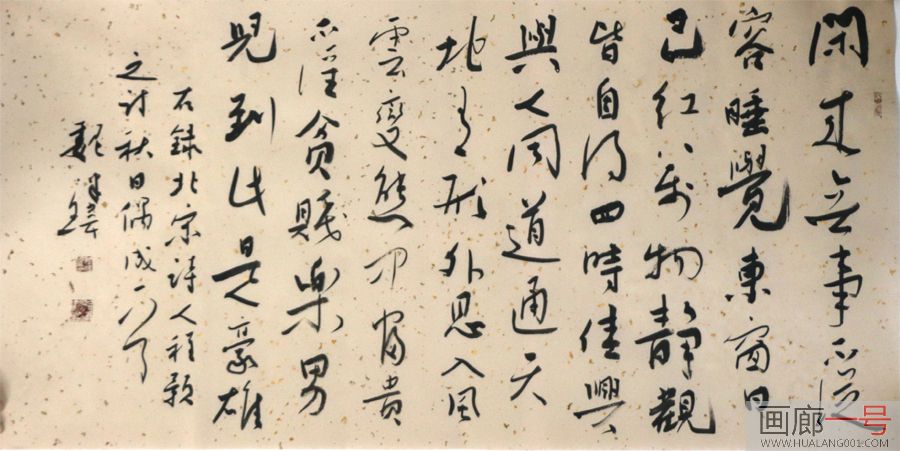 閑來無事不從
容睡覺東窗日
已紅萬物靜觀
皆自得四時佳興
與人同道通天
地有形外思入風
雲變態中富貴
不淫貧賤樂男
兒到此是豪雄
右録北宋詩人程颢
之詩秋日偶成
魏
画廊一号
WWW.HUALANG001.COM